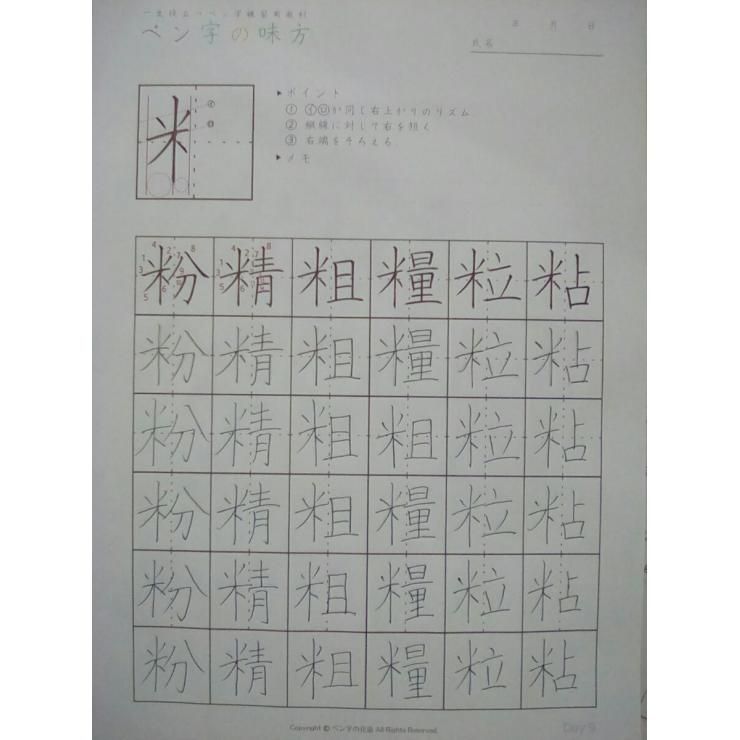 一生役立つペン字練習用教材
ペン字の味方
年 月 日
氏名
米 ㋑ ㋺
▶ポイント
① ㋑㋺が同じ右上がりのリズム
② 縦線に対して右を短く
③ 右端をそろえる
▶メモ
粉 精 粗 糧 粒 粘
粉 精 粗 糧 粒 粘
粉 精 粗 粗 粒 粘
粉 精 粗 糧 粒 粘
粉 精 粗 糧 粒 粘
粉 精 粗 糧 粒 粘
Copyright © ペン字の花道 All Rights Reserved.
Day 9